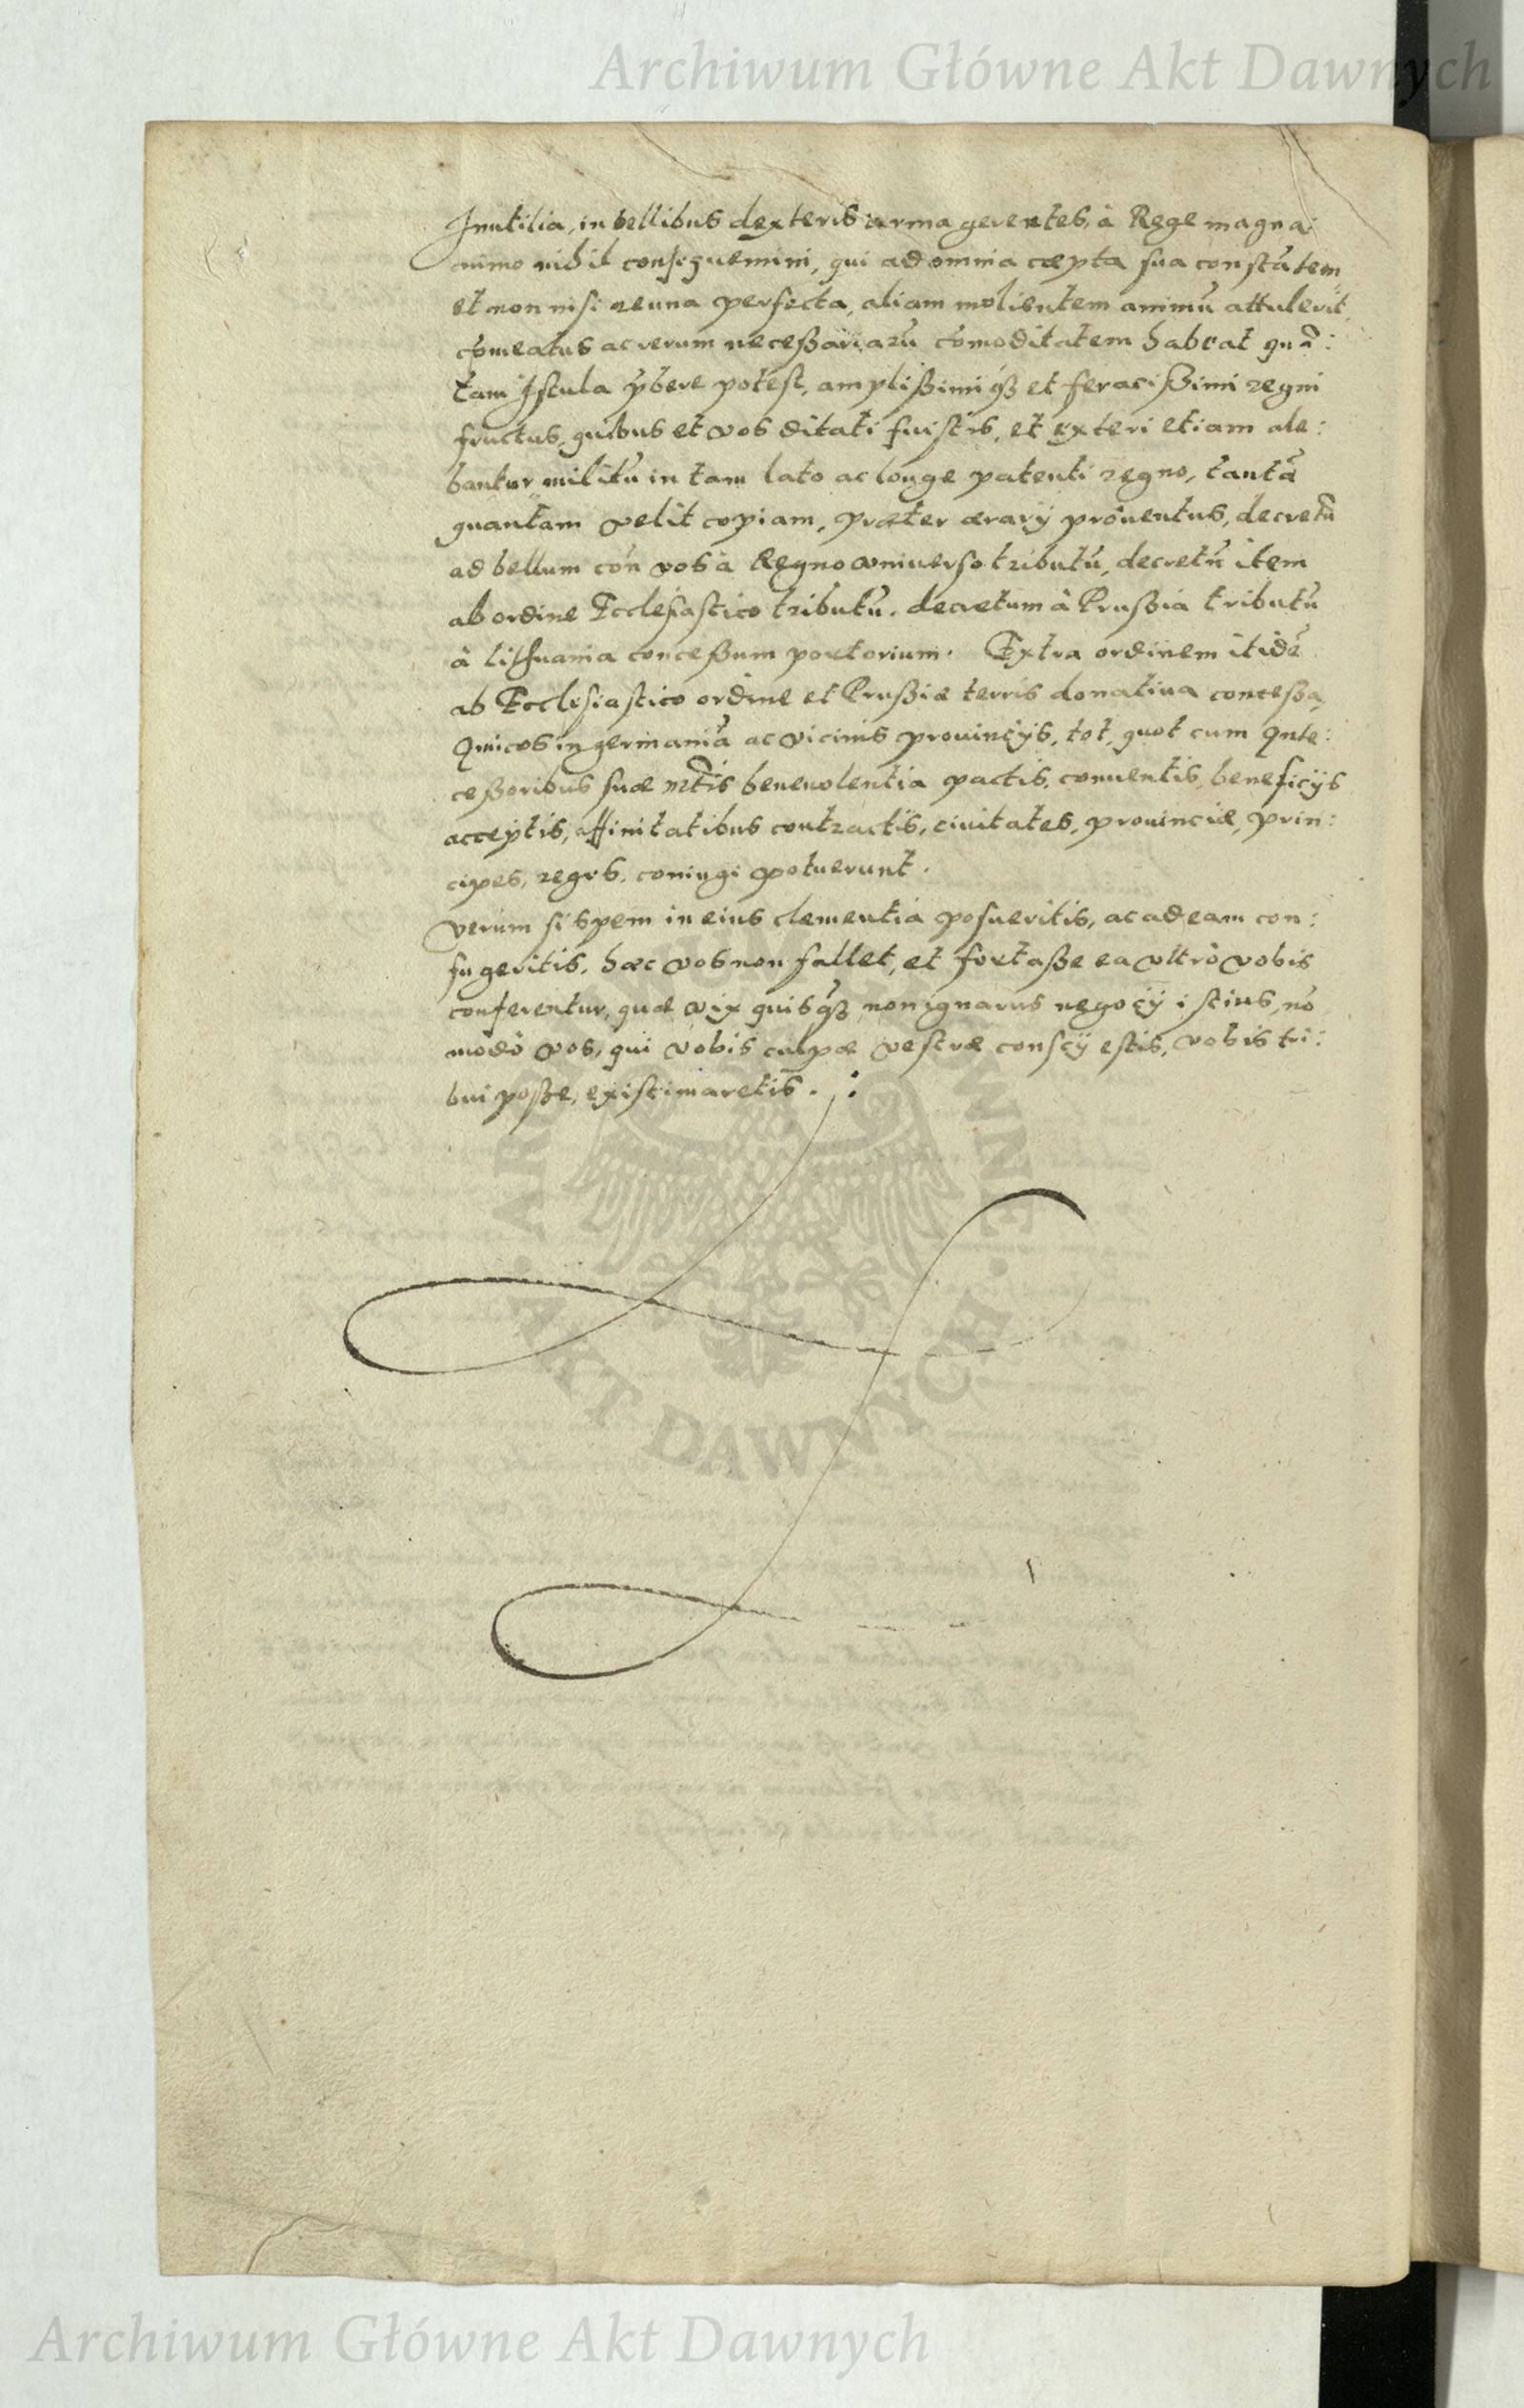 Archiwum Główne Akt Dawnych
Inutilia, in bellibus dexteris arma gerentes, à Rege magna:
nimo nihil consequemini, qui ad omnia cæpta sua constãtem
et non nisi re una perfecta, aliam molientem animũ attulerit,
cõmeatus ac rerum neceßariarũ cõmoditatem habeat quã:
tam Istula p̃bere potest, amplißimiq̃ et feracißimi regni
fructus, quibus et vos ditati fuistis, et exteri etiam ale:
bantur, militũ in tam lato ac longe patenti regno, tantã
quantam velit copiam, præter ærarij prouentus, decretũ
ad bellum con̄ vos à Regno vniuerso tributũ, decretũ item
ab ordine Ecclesiastico tributũ, decretum à Prußia tributũ
à Lithuania conceßum portorium. Extra ordinem itidẽ
ab Ecclesiastico ordine et Prußiæ terris donatiua conceßa,
Amicos in germaniã ac vicinis prouincijs, tot, quot cum Ante:
ceßoribus suæ Mtis beneuolentia pactis, conuentis, beneficijs
acceptis, affinitatibus contractis, ciuitates, prouinciæ, prin:
cipes, reges, coniugi potuerunt.
verum si spem in eius clementia posueritis, ac ad eam con:
fugeritis, hæc vos non fallet, et fortaße ea vltrò vobis
conferentur, quæ vix quisq̃ non ignarus negocij istius, nõ
modò vos, qui vobis culpæ vestræ conscij estis, vobis tri:
bui poße, existimaretis.
ARCHIWUM GŁÓWNE
AKT DAWNYCH
Archiwum Główne Akt Dawnych